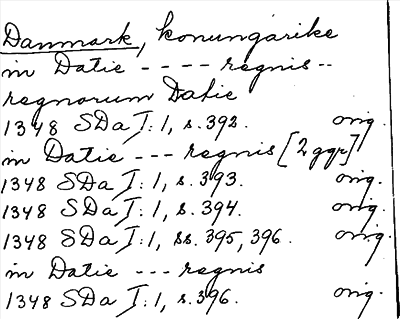 Danmark, konungarike
in Datie ---- regnis --
regnorum Datie
1348 SDa I:1, s. 392. orig.
in Datie --- regnis [2 ggr]
1348 SDa I:1, s. 393. orig.
1348 SDa I:1, s. 394. orig.
1348 SDa I:1, ss. 395, 396. orig.
in Datie --- regnis
1348 SDa I:1, s. 396. orig.